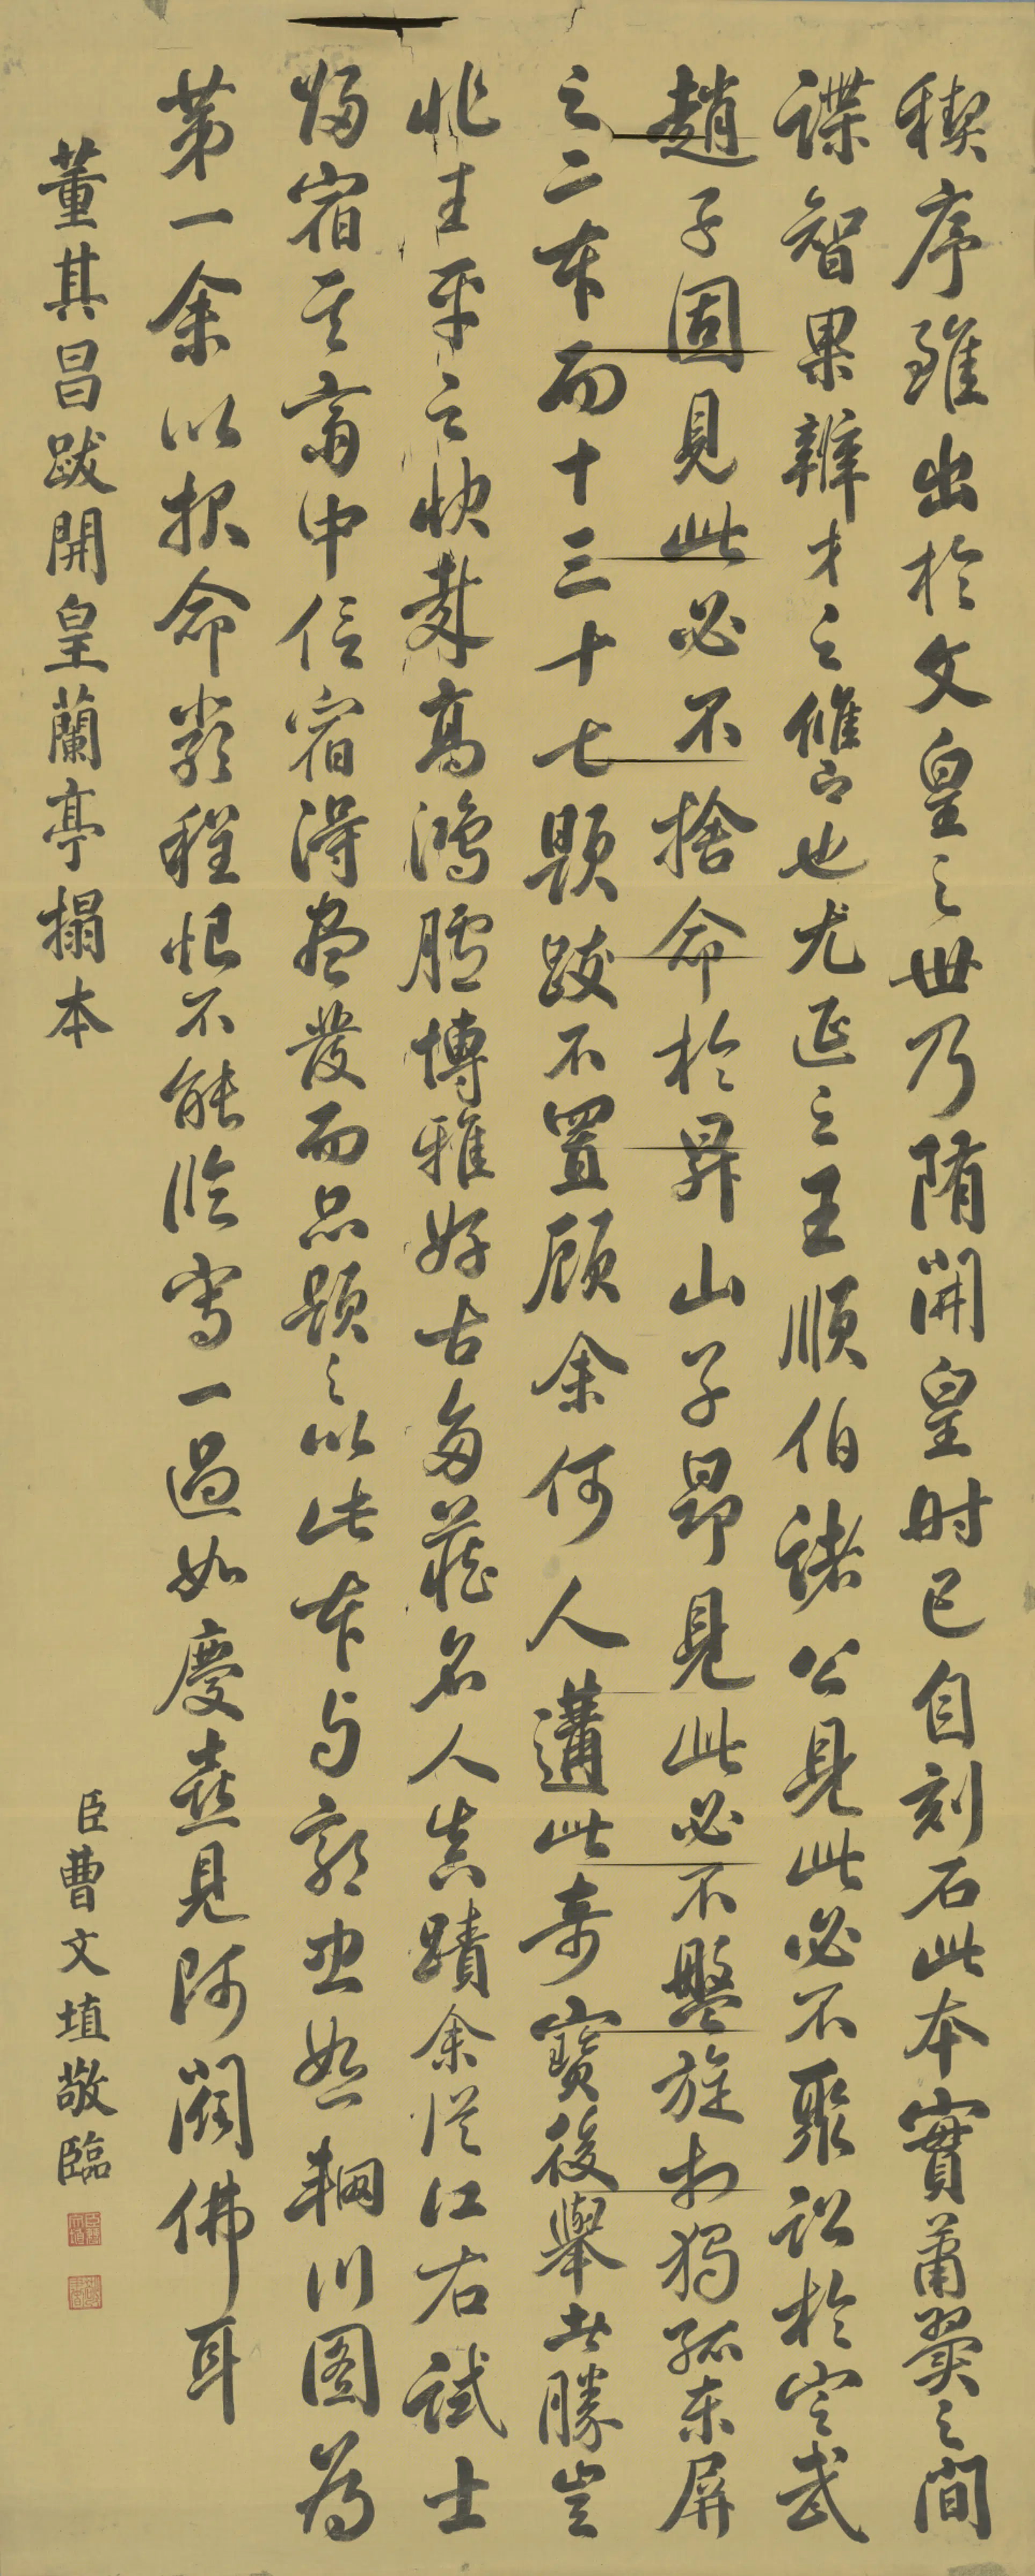 禊序雖出於文皇之世乃隋開皇時已自刻石此本實蕭翼之間
諜智果辨才之讎也尤延之王順伯諸公見此必不聚訟於定武
趙子固見此必不捨命於昇山子昂見此必不盤旋於獨孤東屏
之二本而十三十七題跋不置顧余何人遘此奇寶後舉者勝豈
非生平之快哉高鴻臚博雅好古多藏名人真蹟余從江右試士
歸宿其齋中信宿得盡發而品題之以此本与郭忠恕輞川图為
第一余以報命嚴程恨不能臨寫一過如慶喜見阿閦佛耳
董其昌跋開皇蘭亭搨本
臣曹文埴敬臨